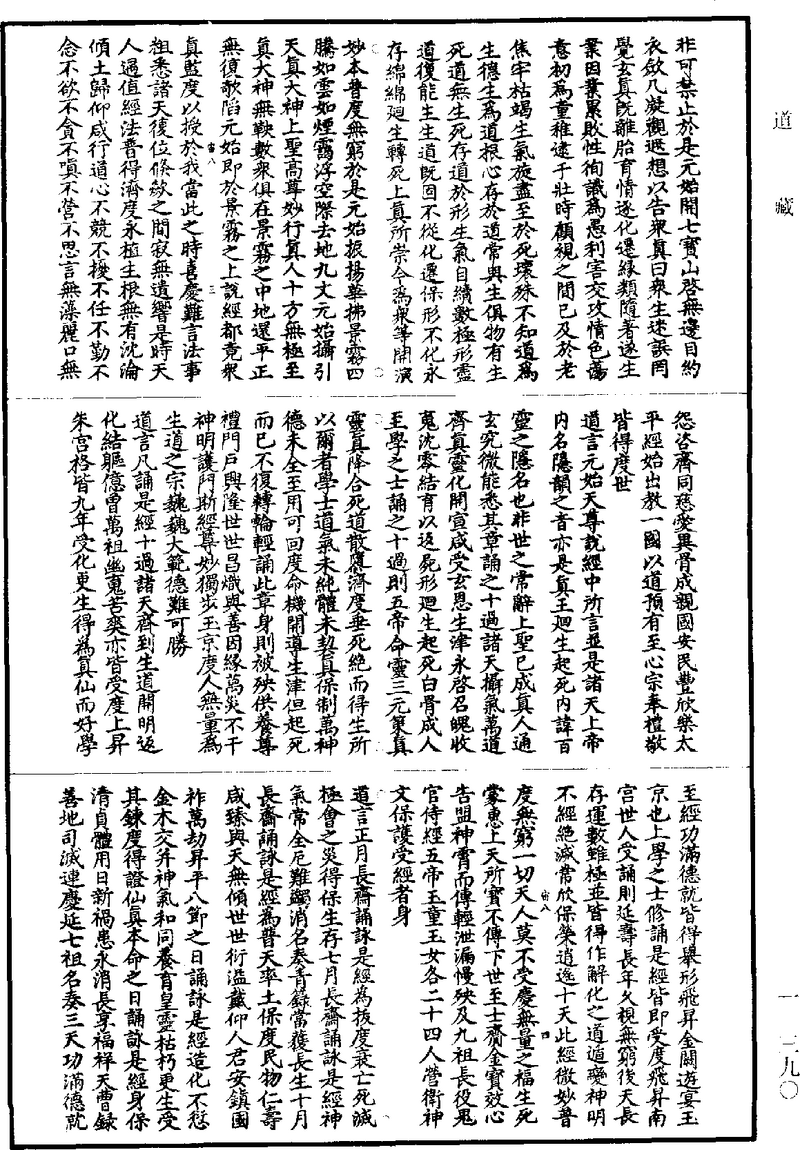 道藏
一 三九〇
非可禁止於是元始開七寶山啓無邊目約
衣斂几凝觀遐想以告衆真曰衆生迷誤罔
覺玄真既離胎育情逐化遷緣類隨著遂生
業因業累敗性徇識爲愚利害交攻情色蕩
意初爲童稚逮于壯時顧視之間已及於老
焦牢枯竭生氣旋盡至於死壞殊不知道爲
生德生爲道根心存於道常與生俱物有生
死道無生死存道於形生氣自續數極形盡
道復能生生道既固不從化遷保形不化永
存綿綿廻生轉死上真所崇今爲衆等開演
妙本普度無窮於是元始振揚華拂景霧四
騰如雲如煙靄浮空際去地九丈元始攝引
天真大神上聖高尊妙行真人十方無極至
真大神無鞅數衆俱在景霧之中地還平正
無復欹陷元始即於景霧之上說經都竟衆
宙八 三
真監度以授於我當此之時喜慶難言法事
粗悉諸天復位倏歘之間寂無遺響是時天
人遇值經法普得濟度永植生根無有沈淪
傾土歸仰咸行道心不競不擾不任不勤不
念不欲不貪不嗔不營不思言無藻麗口無
怨咨齊同慈愛異骨成親國安民豐欣樂太
平經始出教一國以道預有至心宗奉禮敬
皆得度世
道言元始天尊說經中所言並是諸天上帝
內名隱韻之音亦是真王廻生起死內諱百
靈之隱名也非世之常辭上聖已成真人通
玄究微能悉其章誦之十過諸天攝氣萬道
齊真靈化開宣咸受玄恩生津永啓召魄收
䰟沈零結育以返屍形廻生起死白骨成人
至學之士誦之十過則五帝命靈三元策真
靈真降合死道散鷹濟度垂死絶而得生所
以爾者學士道氣未純體未摯真保制萬神
德未全至用可回度命機開導生津但起死
而已不復轉輪輕誦此章身則被殃供養尊
禮門戶興隆世世昌熾與善因緣萬災不干
神明護門斯經尊妙獨步玉京度人無量爲
生道之宗巍巍大範德難可勝
道言凡誦是經十過諸天齊到生道開明返
化結軀億曾萬祖幽䰟苦爽亦皆受度上昇
朱宮格皆九年受化更生得爲真仙而好學
至經功滿德就皆得舉形飛昇金闕遊宴玉
京也上學之士修誦是經皆即受度飛昇南
宮世人受誦則延壽長年久視無窮後天長
存運數雖極並皆得作解化之道遁變神明
不經絶滅常欣保榮逍遙十天此經微妙普
宙八 四
度無窮一切天人莫不受慶無量之福生死
蒙惠上天所寶不傳下世至士齎金寶效心
告盟神霄而傳輕泄漏慢殃及九祖長役鬼
官侍經五帝玉童玉女各二十四人營衛神
文保護受經者身
道言正月長齋誦詠是經爲拔度衰亡死滅
極會之災得保生存七月長齋誦詠是經神
氣常全厄難蠲消名奏青錄當獲長生十月
長齋誦詠是經爲普天率土保度民物仁壽
咸臻與天無傾世世衍溢戴仰人君安鎮國
祚萬劫昇平八節之日誦詠是經造化不愆
金木交并神氣和同養育皇靈枯朽更生受
其鍊度得證仙真本命之日誦詠是經身保
清貞體用日新禍患永消長享福祥天曹録
善地司滅連慶延七祖名奏三天功滿德就